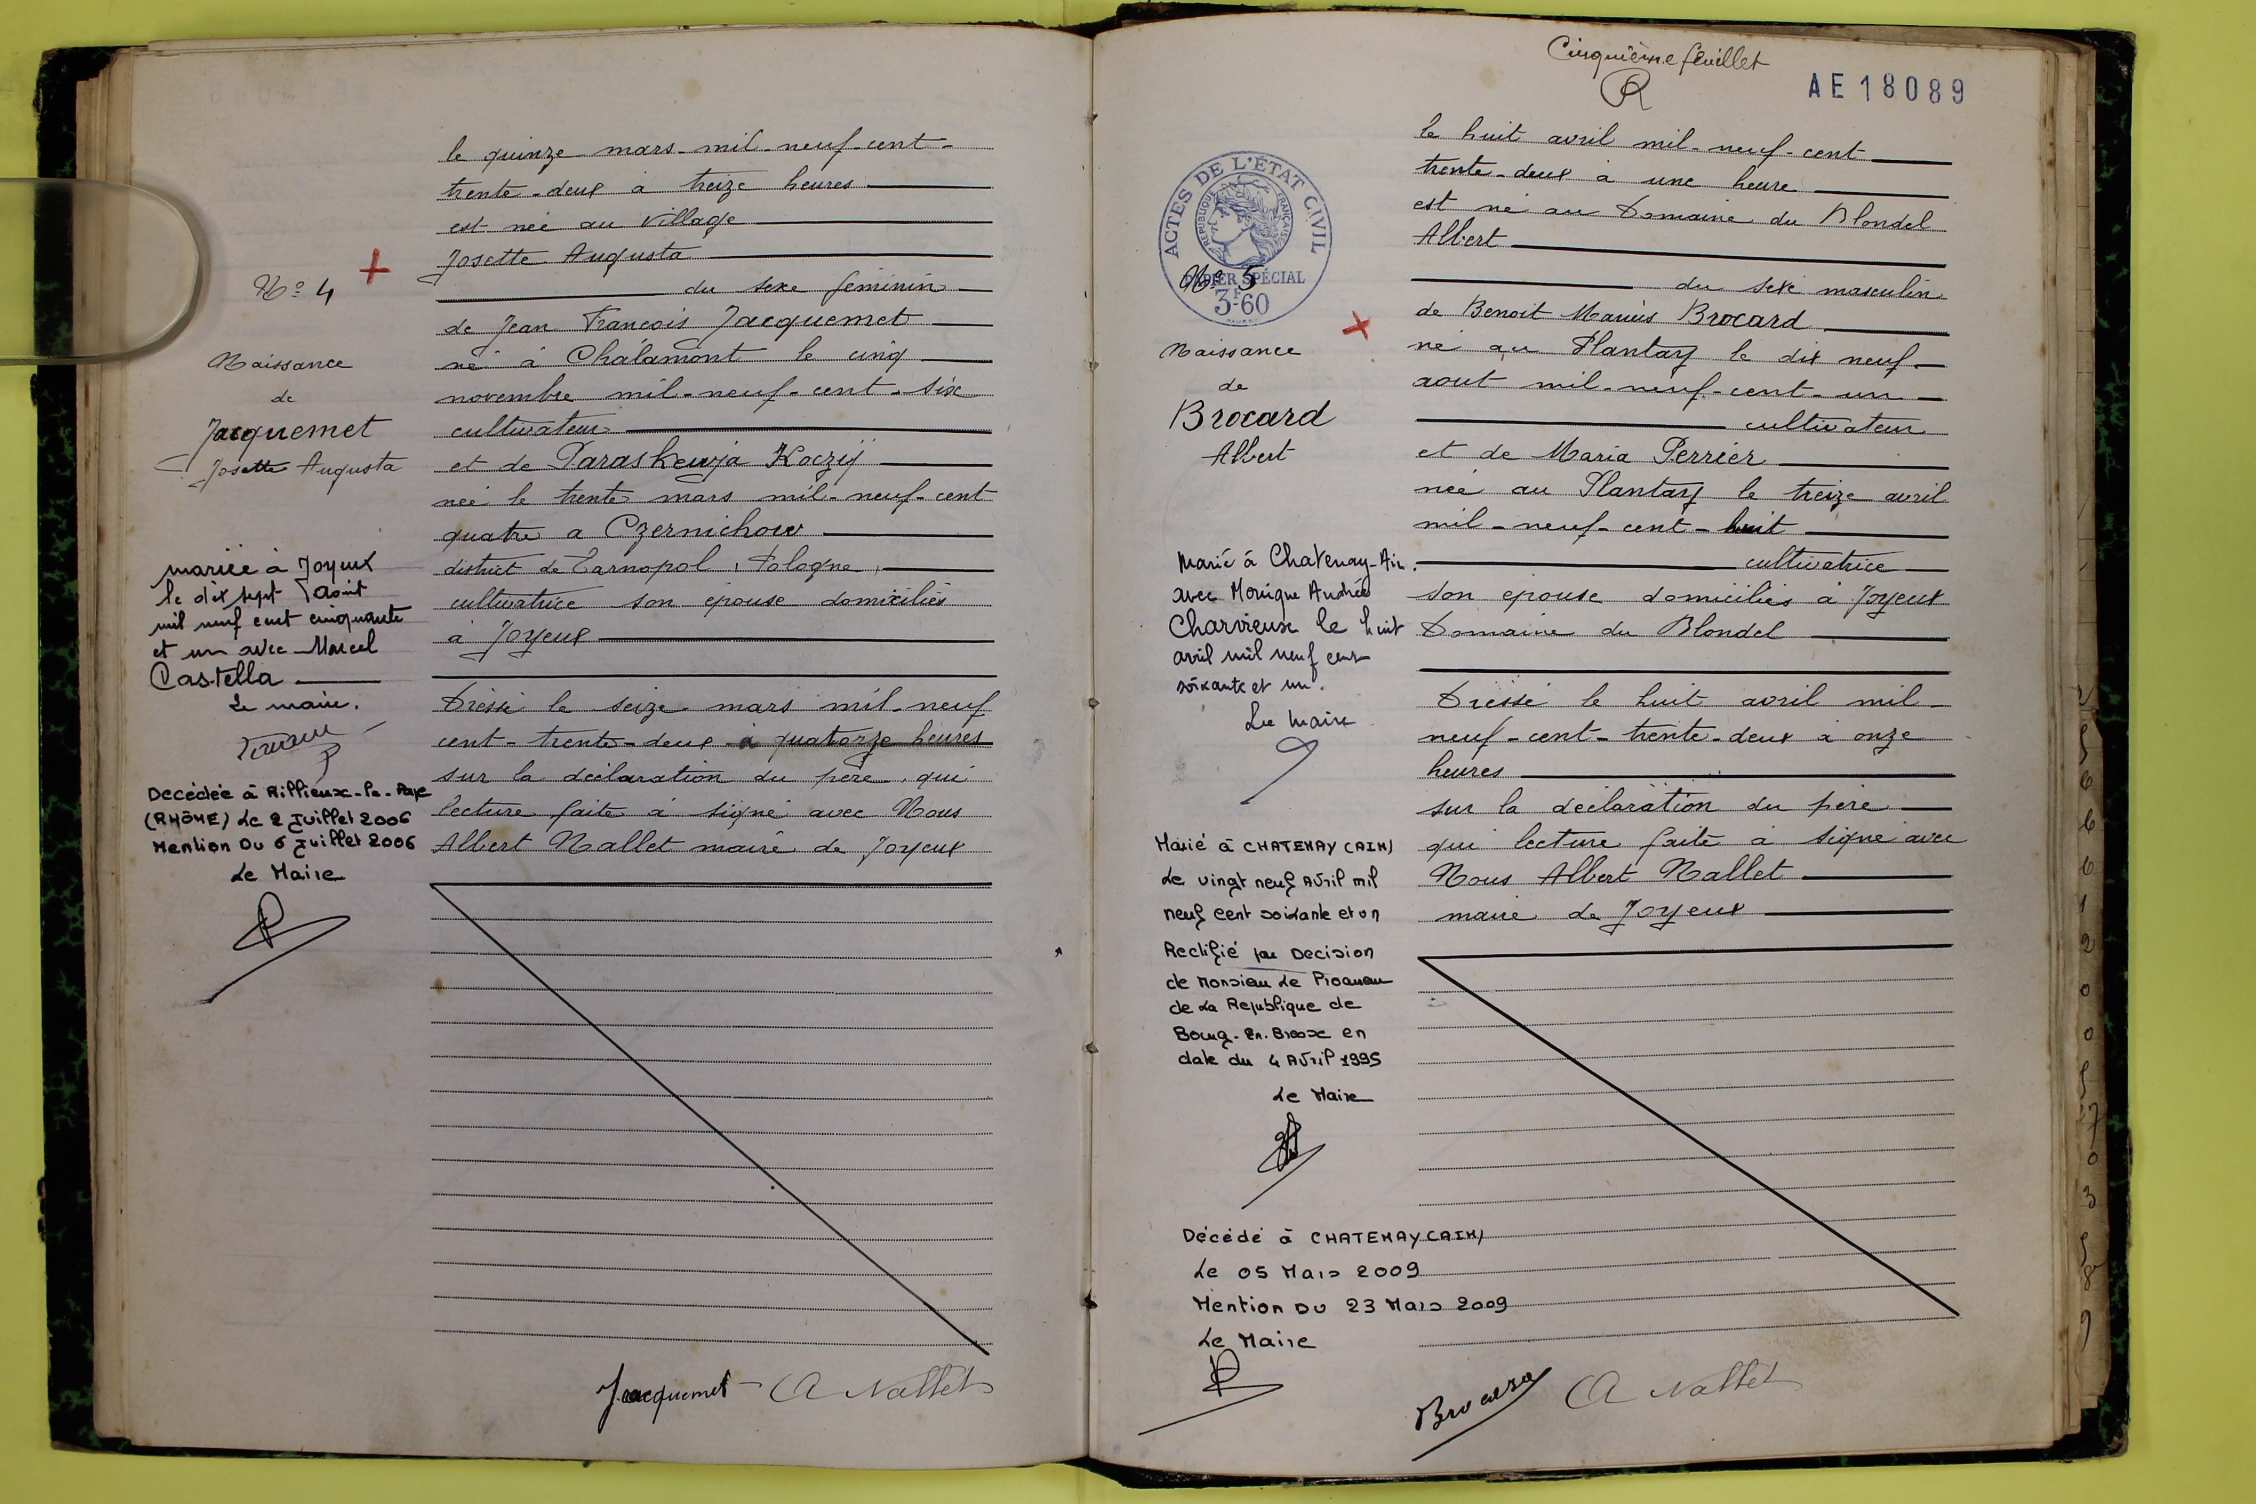 N° 4
Naissance
de
Jacquemet
Josette Augusta
mariée à Joyeux
le dix sept Août
mil neuf cent cinquante
et un avec Marcel
Castella
Le maire.
Décédée à Rillieux-la-Pape
(RHÔNE) Le 2 Juillet 2006
Mention Du 6 Juillet 2006
Le Maire
le quinze mars mil-neuf-cent-
trente-deux à treize heures
est née au village
Josette Augusta
du sexe féminin
de Jean François Jacquemet
né à Châlamont le cinq
novembre mil-neuf-cent-six
cultivateur
et de Paraskewja Koczij
née le trente mars mil-neuf-cent
quatre a Czernichow
district de Tarnopol, Pologne,
cultivatrice son épouse domiciliés
à Joyeux
Dressé le seize mars mil-neuf
cent-trente-deux à quatorze heures
sur la déclaration du père qui
lecture faite à signé avec Nous
Albert Nallet maire de Joyeux
Jacquemet A Nallet
Cinquième feuillet
AE18089
ACTES DE L'ÉTAT CIVIL
RÉPUBLIQUE FRANÇAISE
PAPIER SPÉCIAL
3F60
N° 5
Naissance
de
Brocard
Albert
Marié à Chatenay-Ain.
avec Monique Andrée
Charvieux le huit
avril mil neuf cent
soixante et un.
Le Maire
Marié à CHATENAY (AIN)
Le vingt neuf Avril mil
neuf cent soixante et un
Rectifié par Decision
de Monsieur Le Procureur
de La Republique de
Bourg-En-Bresse en
date du 4 Avril 1995
Le Maire
Décédé à CHATENAY (AIN)
Le 05 Mars 2009
Mention DU 23 Mars 2009
Le Maire
le huit avril mil-neuf-cent
trente-deux à une heure
est né au Domaine du Blondel
Albert
du sexe masculin
de Benoit Marius Brocard
né au Plantay le dix neuf
aout mil-neuf-cent-un
cultivateur
et de Maria Perrier
née au Plantay le treize avril
mil-neuf-cent-huit
cultivatrice
son épouse domiciliés à Joyeux
Domaine du Blondel
Dressé le huit avril mil-
neuf-cent-trente-deux à onze
heures
sur la déclaration du père
qui lecture faite à signé avec
Nous Albert Nallet
maire de Joyeux
Brocard A Nallet